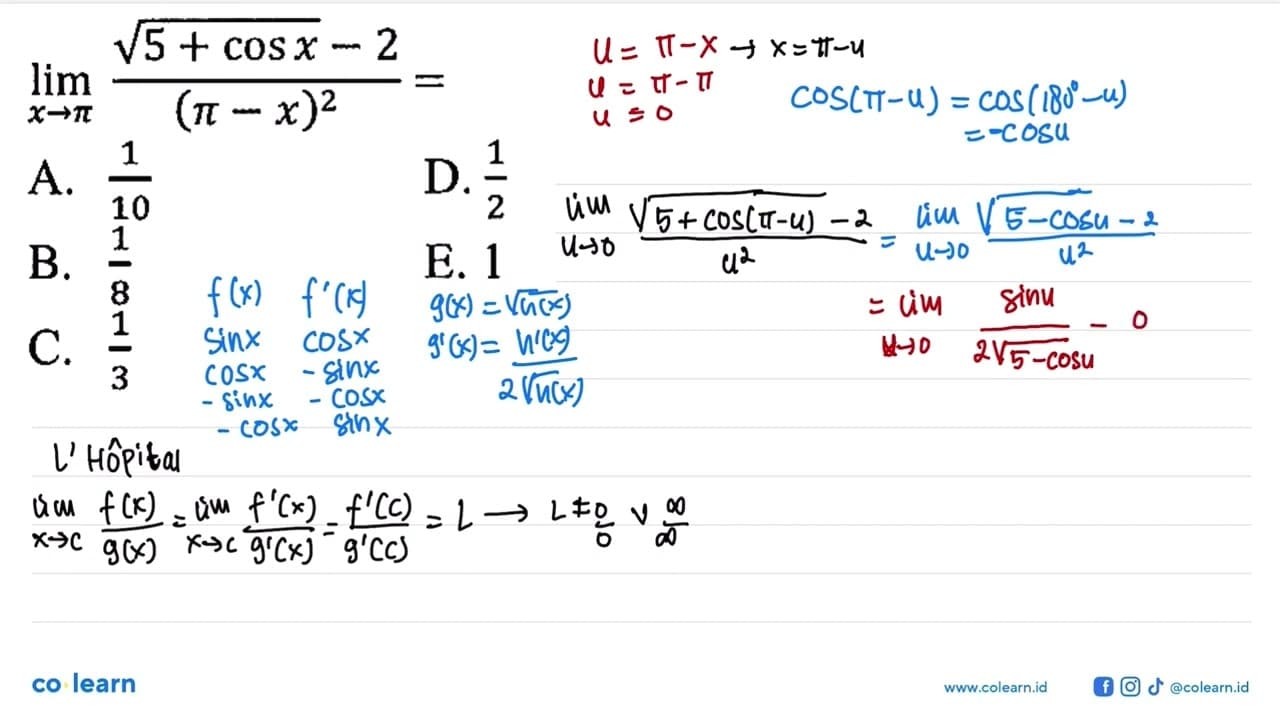 lim x→π (√(5 + cos x) − 2)/(π − x)² =
A. 1/10
B. 1/8
C. 1/3
D. 1/2
E. 1
u = π − x → x = π − u
u = π − π
u = 0
cos(π − u) = cos(180° − u)
= −cos u
lim u→0 (√(5 + cos(π − u)) − 2)/u² = lim u→0 (√(5 − cos u) − 2)/u²
= lim u→0 sin u/(2√(5 − cos u)) − 0
f(x) f'(x)
sin x cos x
cos x − sin x
− sin x − cos x
− cos x sin x
g(x) = √(h(x))
g'(x) = h'(x)/(2√(h(x)))
L'Hôpital
lim x→c f(x)/g(x) = lim x→c f'(x)/g'(x) = f'(c)/g'(c) = L → L ≠ 0/0 ∨ ∞/∞
co learn
www.colearn.id
@colearn.id